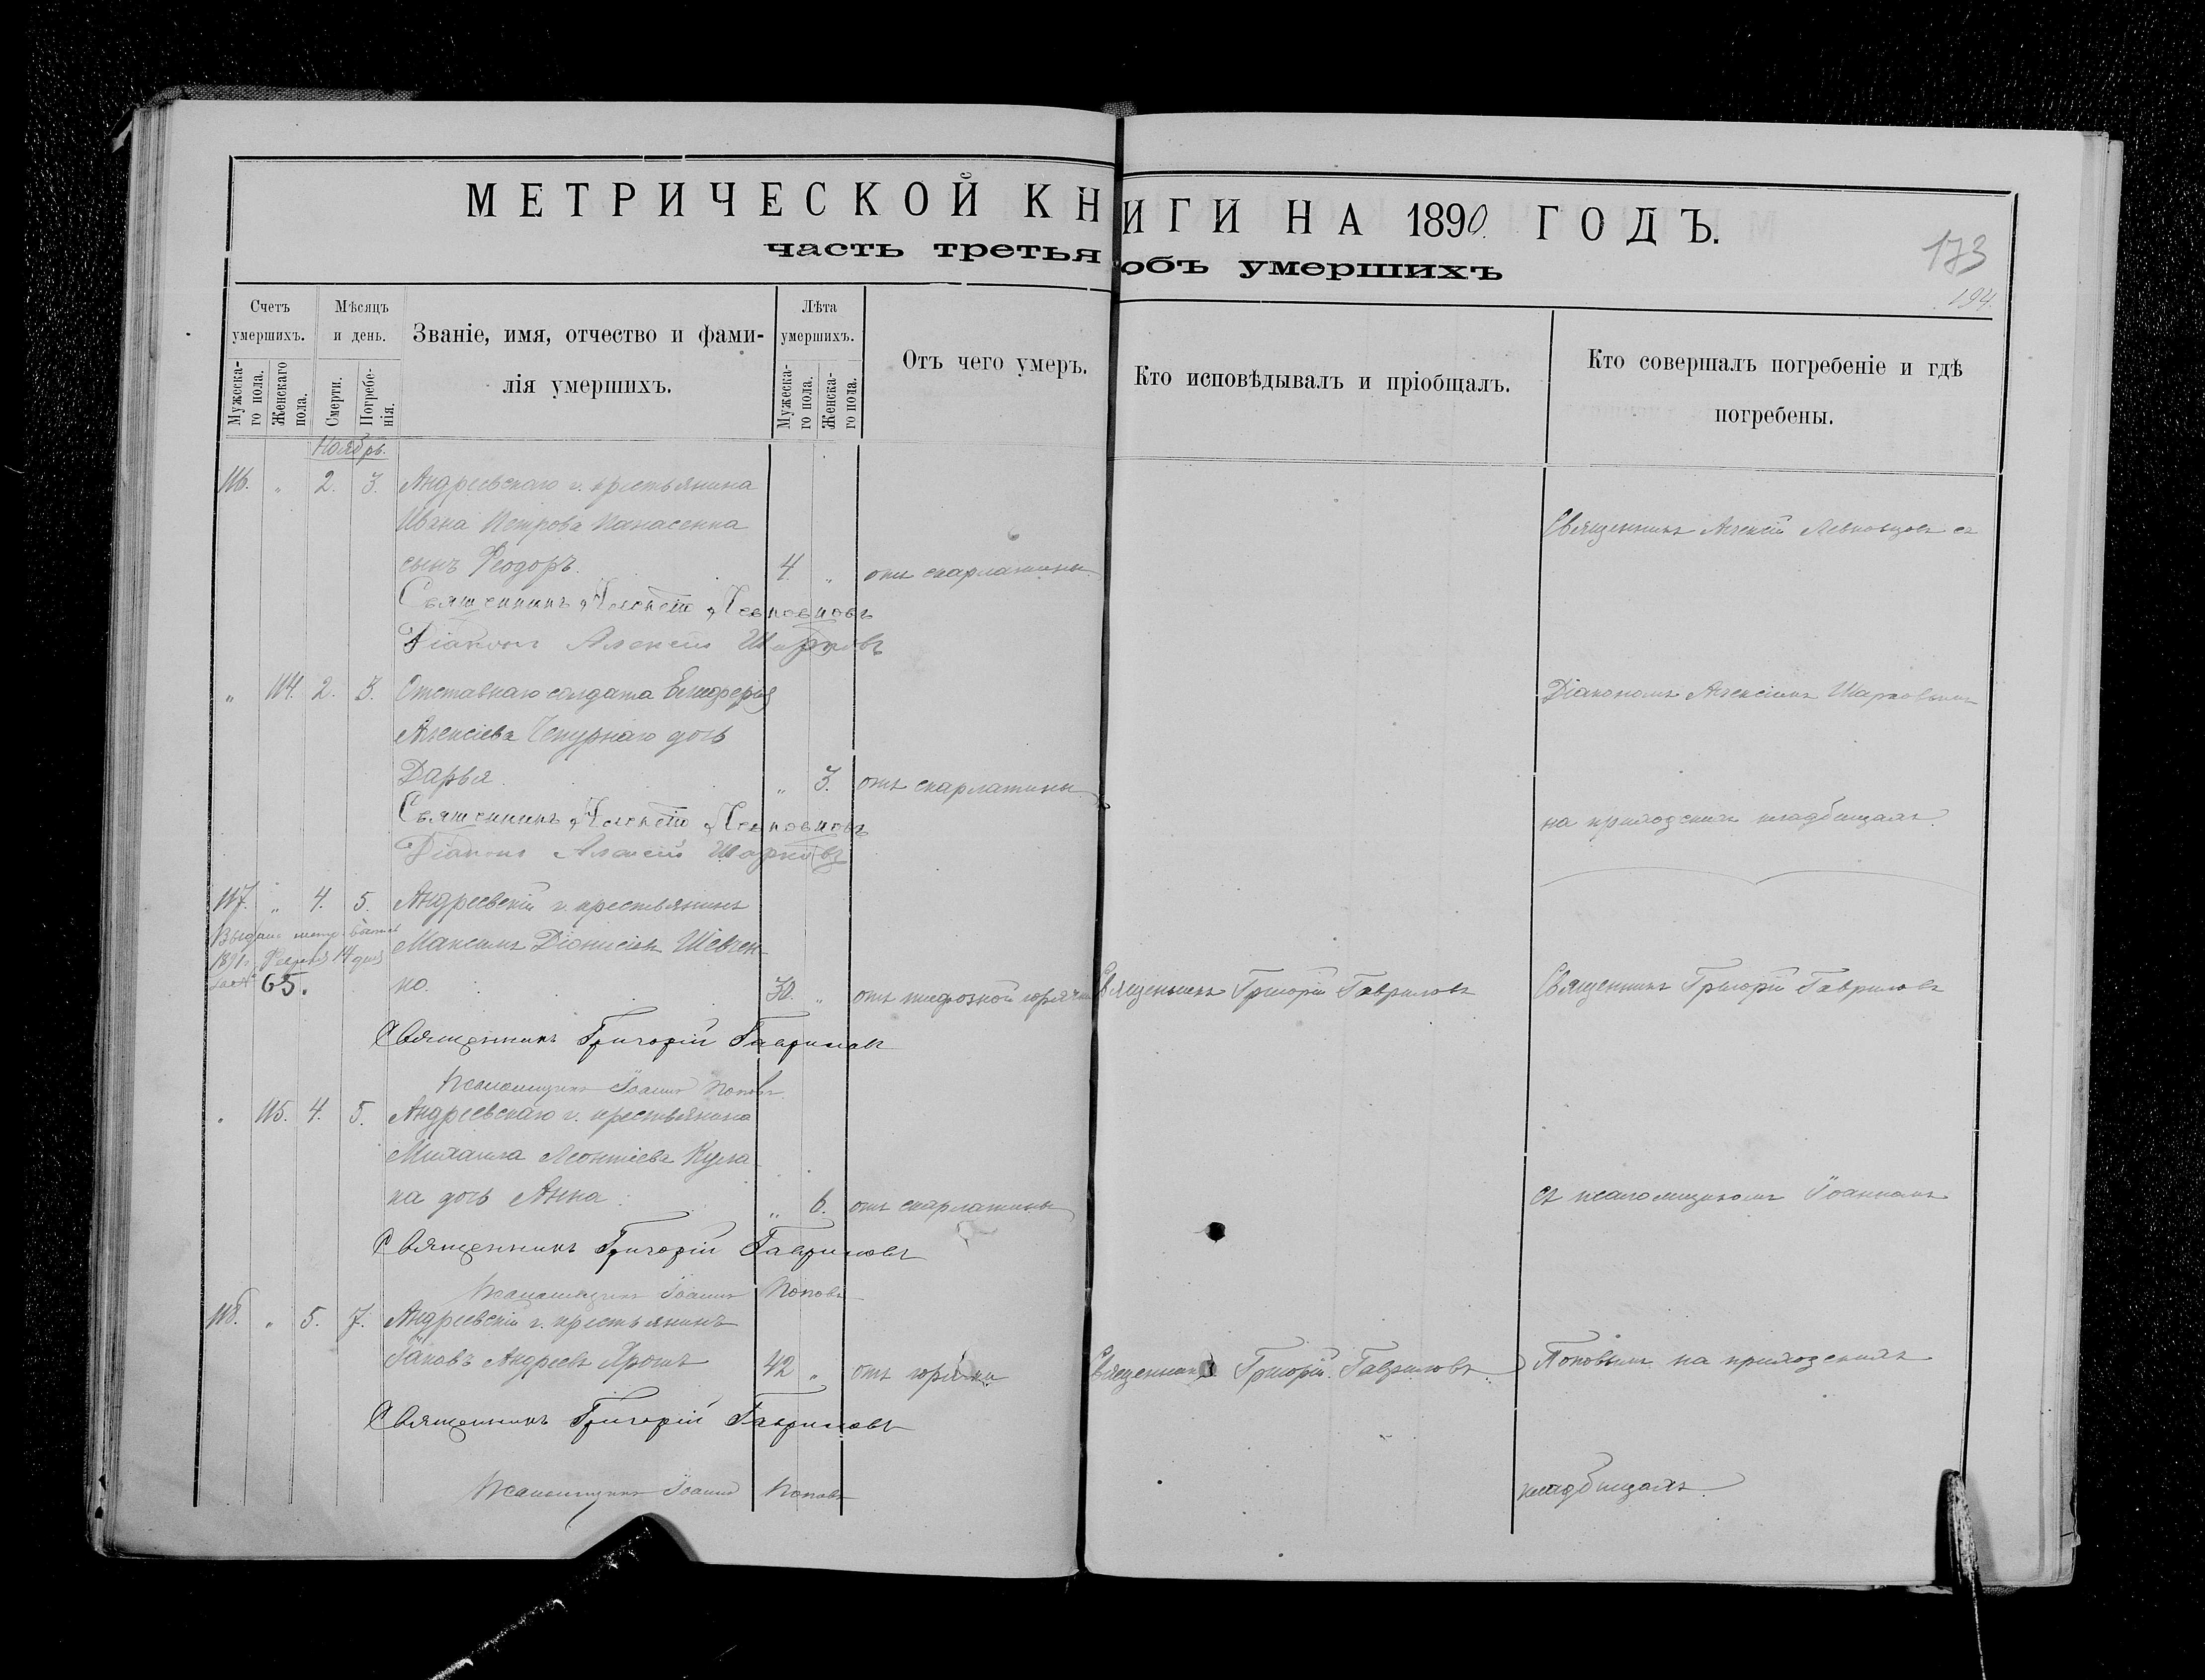 МЕТРИЧЕСКОЙ КНИГИ НА 1890 ГОДЪ.
часть третья объ умершихъ
173
194.
Счетъ умершихъ.
Мѣсяцъ и день.
Званіе, имя, отчество и фами-
лія умершихъ.
Лѣта умершихъ.
Отъ чего умеръ.
Кто исповѣдывалъ и пріобщалъ.
Кто совершалъ погребеніе и гдѣ
погребены.
Мужеска-
го пола.
Женскаго
пола.
Смерти.
Погребе-
нія.
Мужеска-
го пола.
Женска-
го пола.
Ноябрь.
116. " 2. 3. Андреевскаго г. крестьянина
Ивана Петрова Панасенка
Священникъ Алексій Левковцовъ съ
сынъ Ѳеодоръ. 4. " отъ скарлатины.
Священникъ Алексѣй
Діаконъ Алексій Шарковъ
" 114. 2. 3. Отставнаго солдата Елиѳерія
Діакономъ Алексіемъ Шарковымъ
Алексіева Чепурнаго дочь
Дарья. " 3. отъ скарлатины
Священникъ Алексѣй
на приходскомъ кладбищѣ.
Діаконъ Алексій Шарковъ
117. " 4. 5. Андреевскій г. крестьянинъ
Максимъ Діонисіевъ Шевчен-
1891 14 дня
65.
ко. 30. " отъ тифозной горячки Священникъ Григорій Гавриловъ Священникъ Григорій Гавриловъ
Священникъ Григорій Гавриловъ
Псаломщикъ Іоаннъ Поповъ.
" 115. 4. 5. Андреевскаго г. крестьянина
Михаила Леонтіева Кула-
ка дочь Анна. " 6. отъ скарлатины
съ псаломщикомъ Іоанномъ
Священникъ Григорій Гавриловъ
Псаломщикъ Іоаннъ Поповъ
118. " 5. 7. Андреевскій г. крестьянинъ
Іаковъ Андреевъ 42 " отъ горячки Священникъ Григорій Гавриловъ. Поповымъ на приходскомъ
Священникъ Григорій Гавриловъ
Псаломщикъ Іоаннъ Поповъ
кладбищѣ.